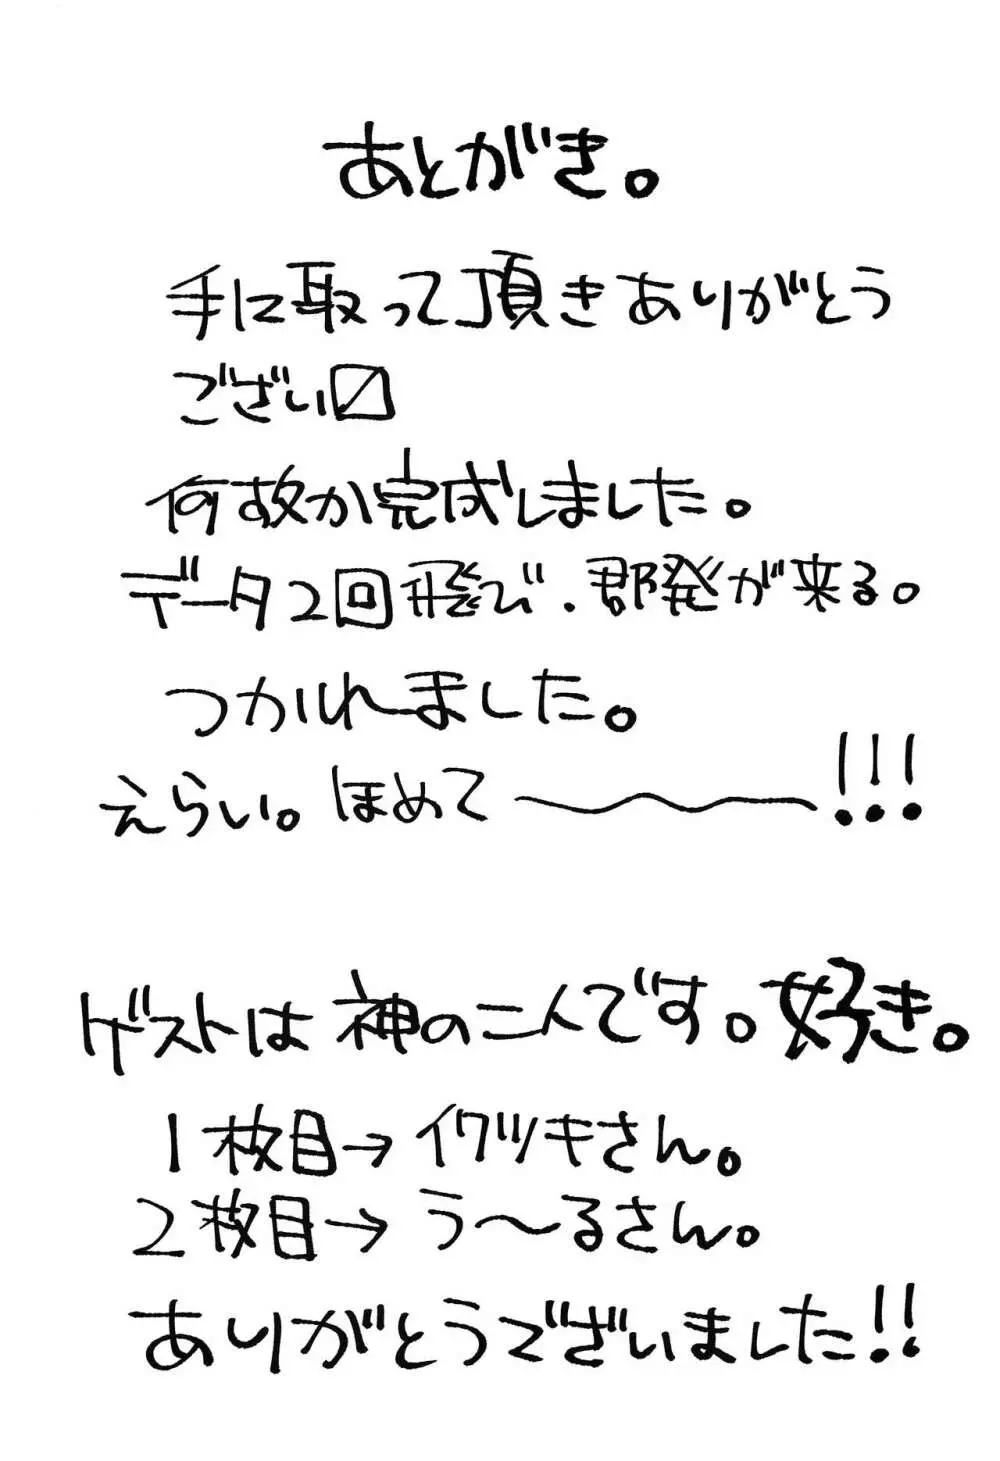 あとがき。
手に取って頂きありがとう
ござい〼
何故か完成しました。
データ2回飛び、群発が来る。
つかれました。
えらい。ほめて〜!!!
ゲストは神の二人です。好き。
1枚目→イワツキさん。
2枚目→う〜るさん。
ありがとうございました!!